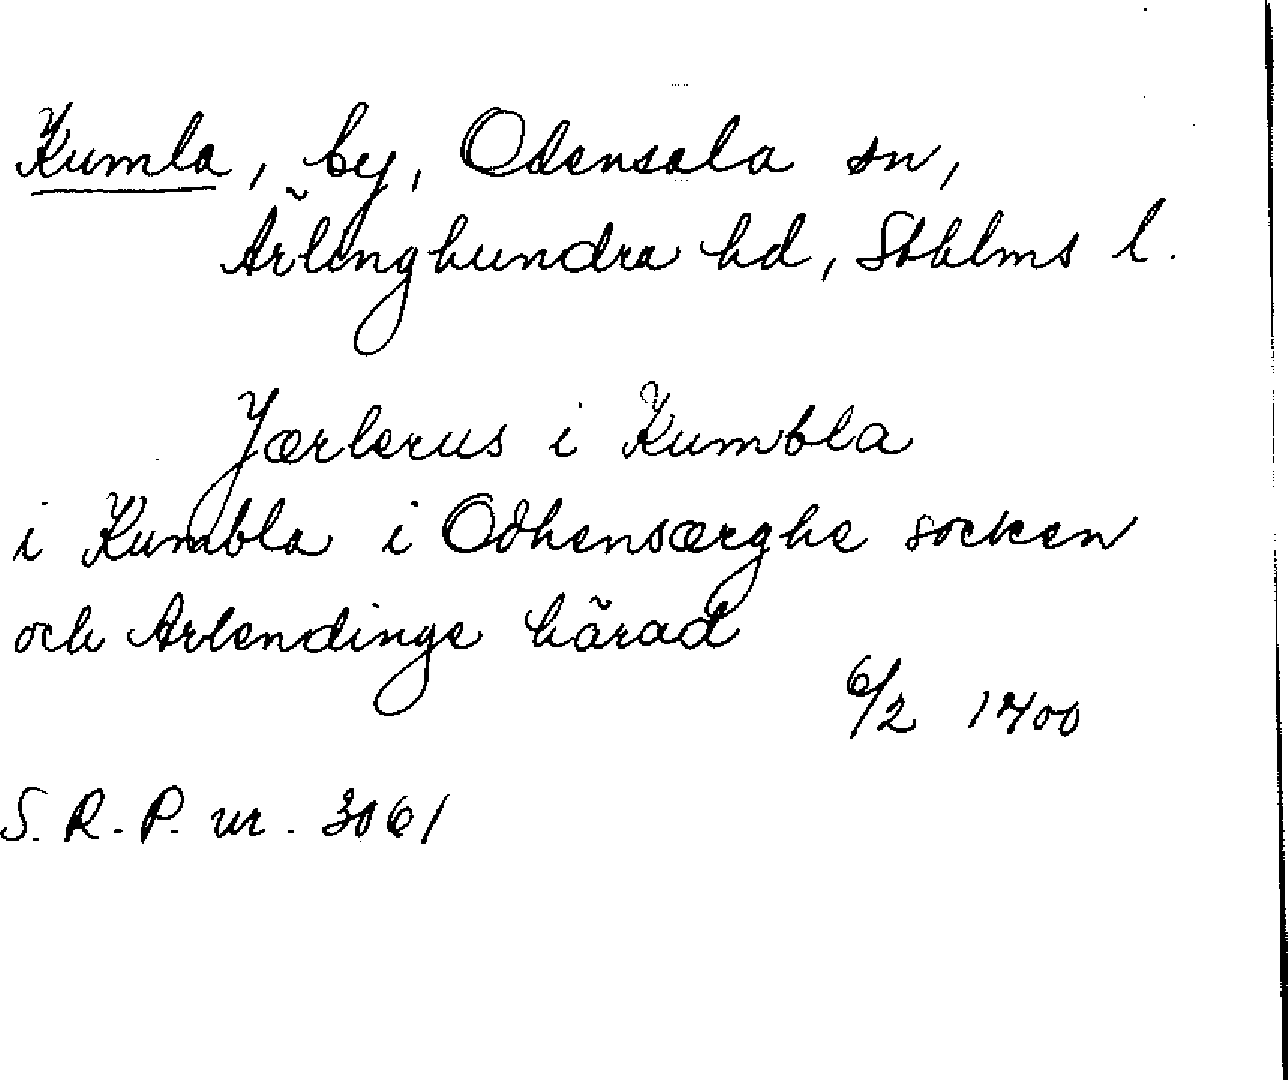 Kumla, by, Odensala sn,
Ärlinghundra hd, Sthlms l.
Jærlerus i Kumbla
i Kumbla i Odhensærghe socken
och Arlendinge härad
6/2 1400
S. R. P. nr. 3061